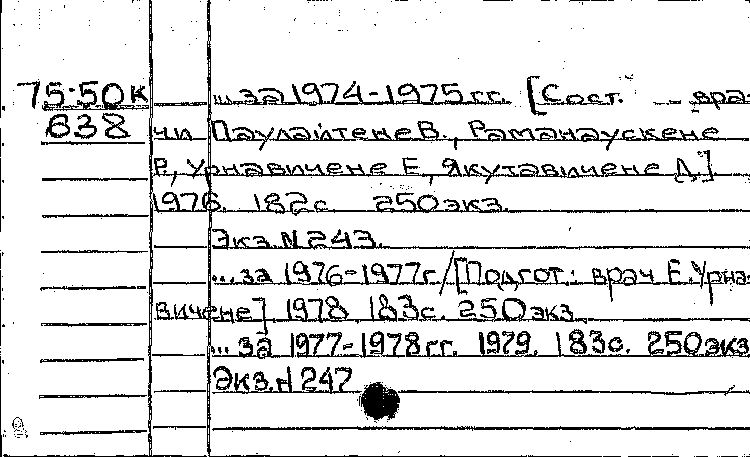 75-50к ...за 1974-1975гг. [Сост. вра-
638 чи Паулайтене В., Раманаускене
Р., Урнавичене Е., Якутавичене Д.]
1976. 182с. 250экз.
Экз.N 243.
...за 1976-1977г/[Подгот.: врач Е.Урна-
вичене]. 1978. 183с. 250экз.
...за 1977-1978гг. 1979. 183с. 250экз
Экз.N 247